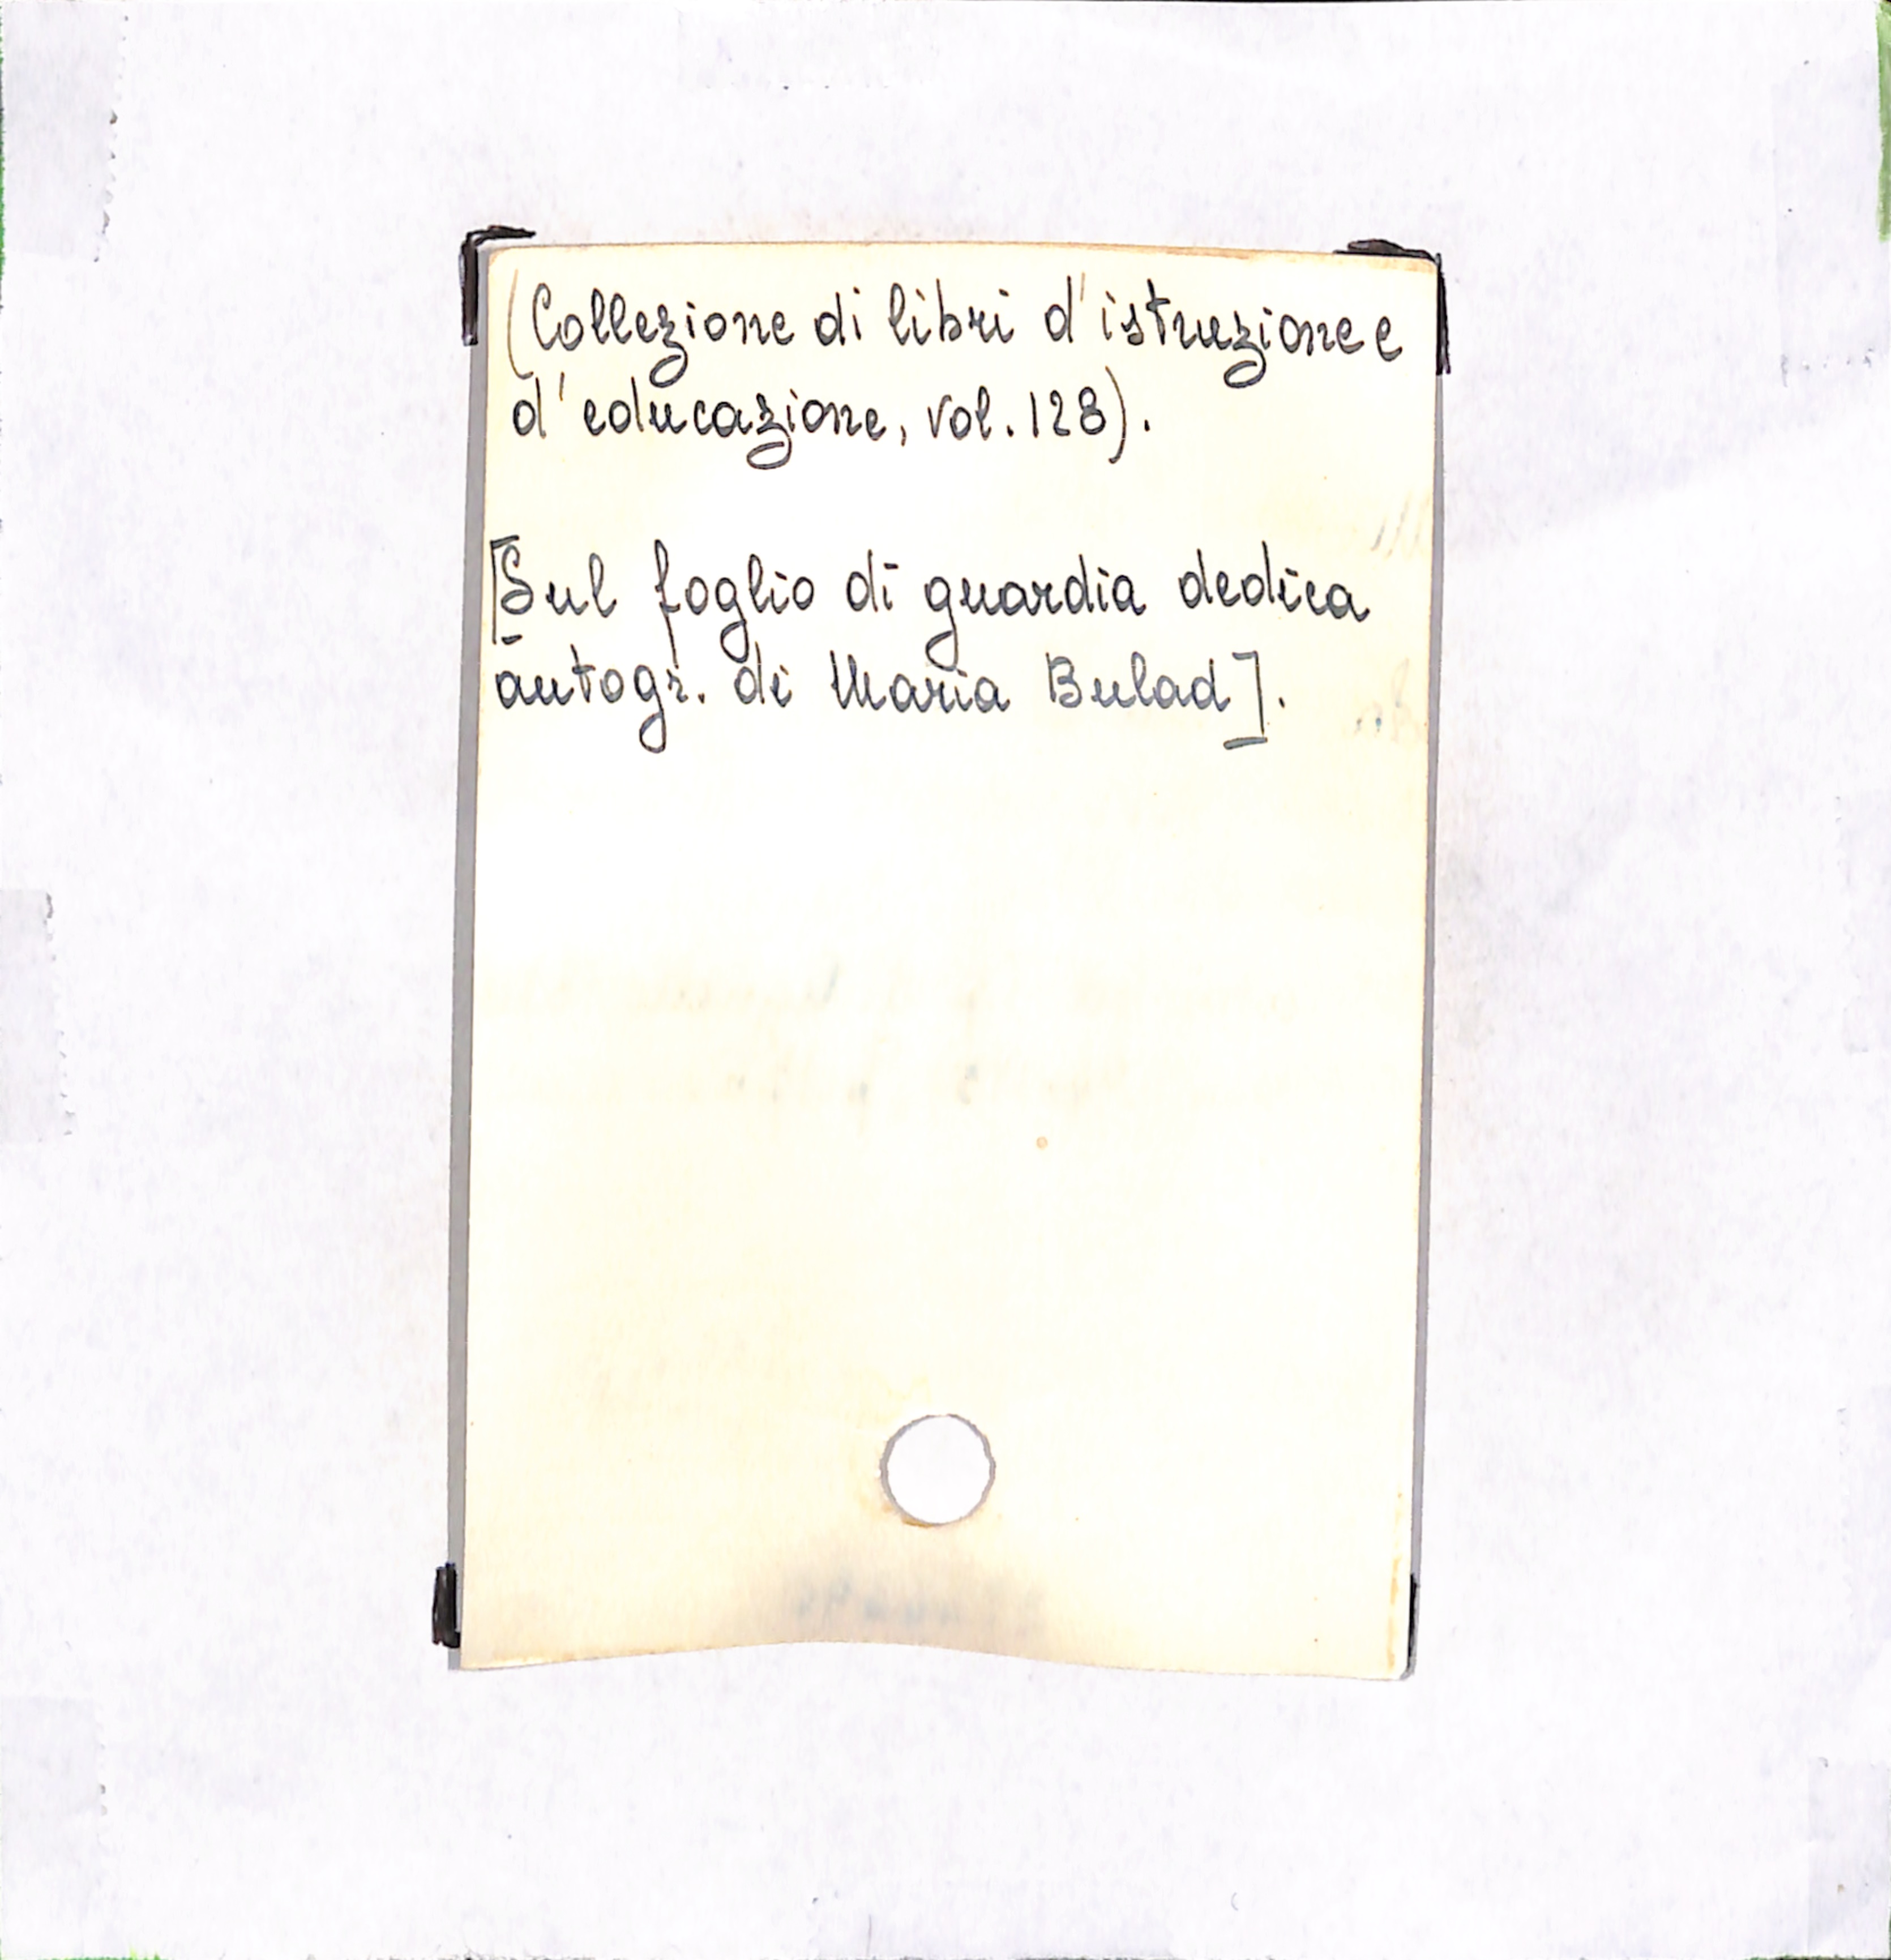 (Collezione di libri d'istruzione e
d'educazione, vol. 128).
[Sul foglio di guardia dedica
autogr. di Maria Bulad].